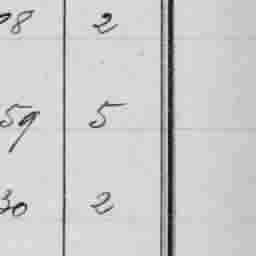 8 2
59 5
30 2